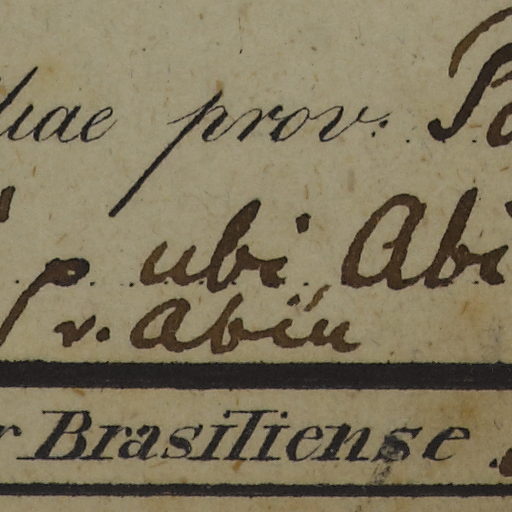 iliae prov. Pa
p ubi Abi
v. Abiu
r Brasiliense